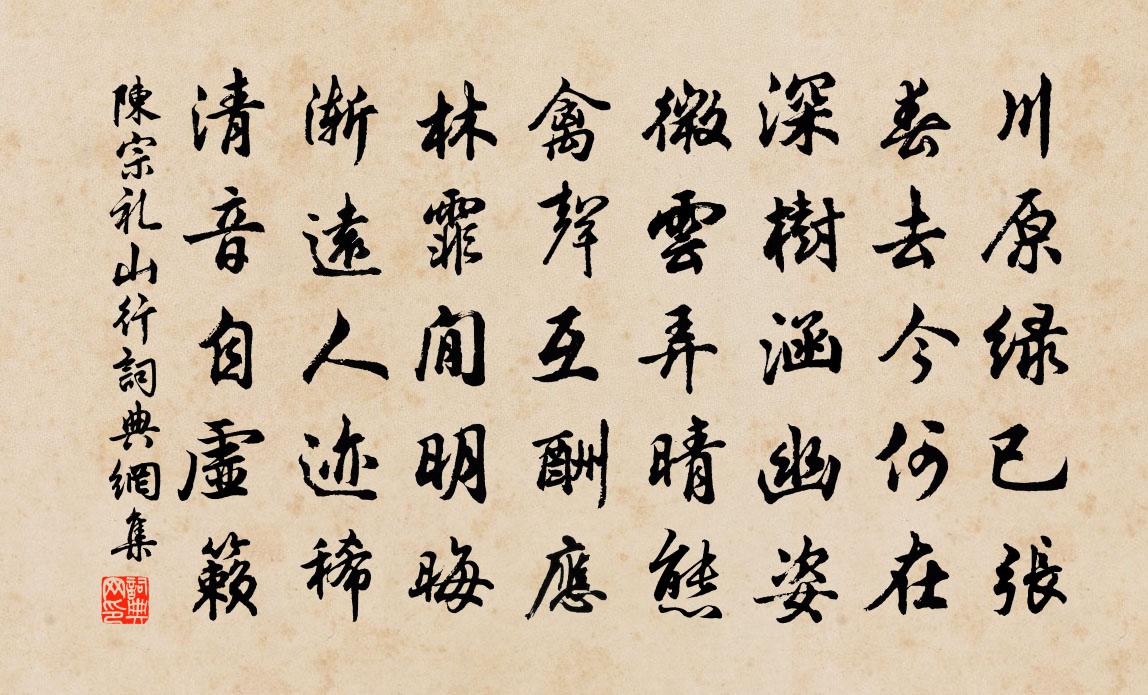 川原緑已張
春去今何在
深樹涵幽姿
微雲弄晴態
禽聲互酬應
林霏間明晦
漸遠人迹稀
清音自虛籟
陳宗礼山行詞典網集
詞典
网印